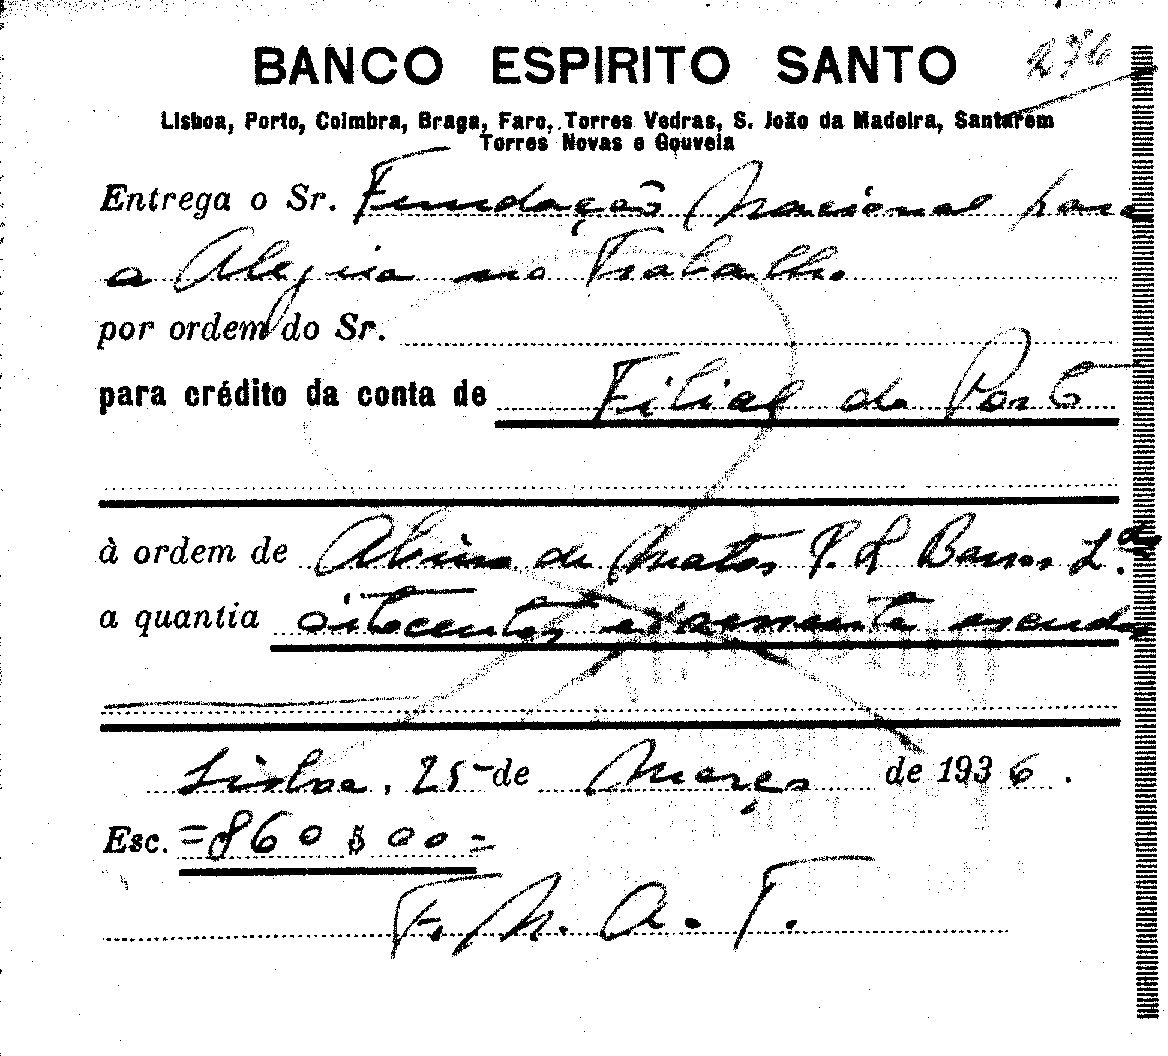 BANCO ESPIRITO SANTO
276
Lisboa, Porto, Coimbra, Braga, Faro, Torres Vedras, S. João da Madeira, Santarem
Torres Novas e Gouveia
Entrega o Sr. Fundação Nacional para
a Alegria no Trabalho
por ordem do Sr.
para crédito da conta de Filial do Porto
à ordem de Albino de Matos P. & Barros L.da
a quantia oitocentos e sessenta escudos
Lisboa, 25 de Março de 1936.
Esc. =860$00=
F. N. A. T.